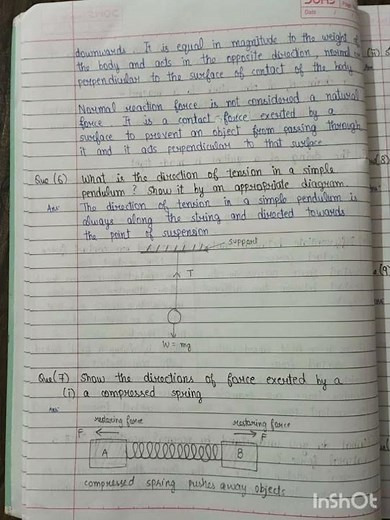 Date
downwards. It is equal in magnitude to the weight of
the body and acts in the opposite direction, normal or
perpendicular to the surface of contact of the body.
Normal reaction force is not considered a natural
force. It is a contact force exerted by a
surface to prevent an object from passing through
it and it acts perpendicular to that surface
Que (6) What is the direction of tension in a simple
pendulum? Show it by an appropriate diagram.
Ans: The direction of tension in a simple pendulum is
always along the string and directed towards
the point of suspension
support
T
W = mg
Que(7) Show the directions of force exerted by a
(i) a compressed spring
Ans:
restoring force restoring force
F F
A B
compressed spring pushes away objects
InShOt